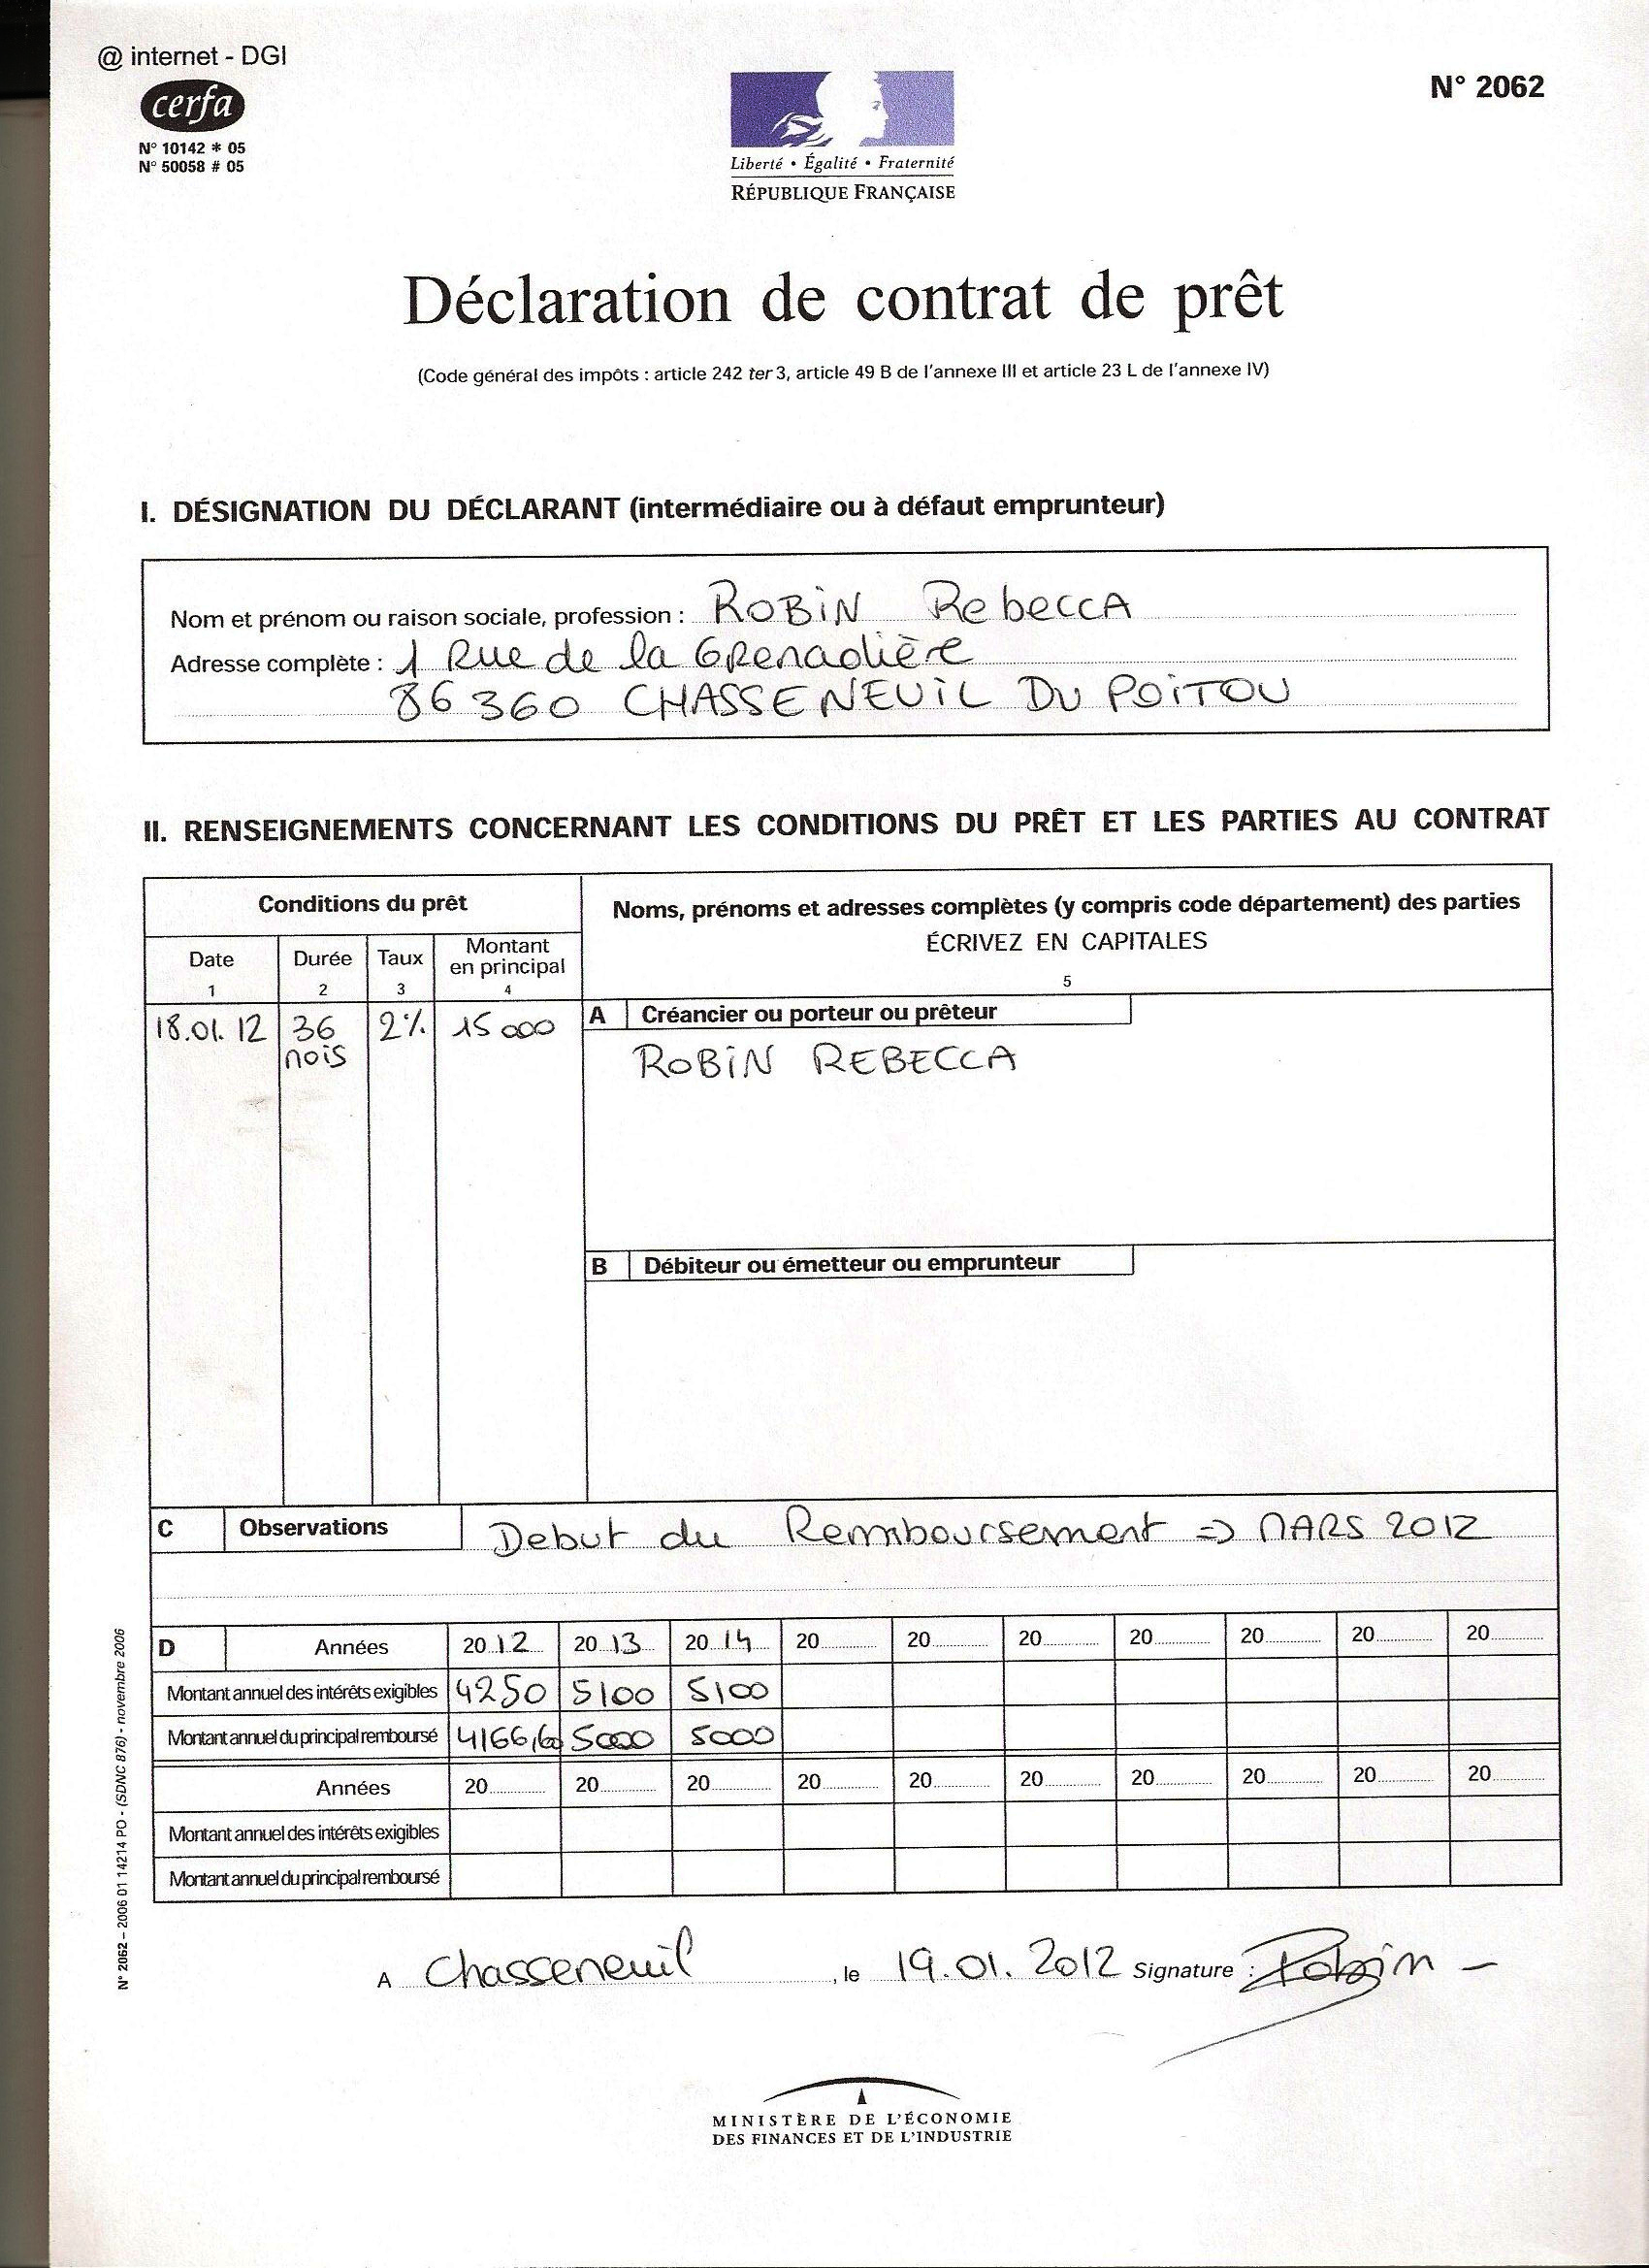 @ internet - DGI
cerfa
N° 10142 * 05
N° 50058 # 05
Liberté • Égalité • Fraternité
RÉPUBLIQUE FRANÇAISE
N° 2062
Déclaration de contrat de prêt
(Code général des impôts : article 242 ter 3, article 49 B de l'annexe III et article 23 L de l'annexe IV)
I. DÉSIGNATION DU DÉCLARANT (intermédiaire ou à défaut emprunteur)
Nom et prénom ou raison sociale, profession : ROBiN RebeccA
Adresse complète : 1 Rue de la Grenadière
86 360 CHASSENEUiL DU POiTOU
II. RENSEIGNEMENTS CONCERNANT LES CONDITIONS DU PRÊT ET LES PARTIES AU CONTRAT
Conditions du prêt
Noms, prénoms et adresses complètes (y compris code département) des parties
ÉCRIVEZ EN CAPITALES
Date Durée Taux Montant en principal
1 2 3 4 5
18.01.12 36 nois 2% 15 000
A Créancier ou porteur ou prêteur
ROBiN REBECCA
B Débiteur ou émetteur ou emprunteur
C Observations Debut du Remboursement => MARS 2012
D Années 20 12 20 13 20 14 20 20 20 20 20 20 20
Montant annuel des intérêts exigibles 4250 5100 5100
Montant annuel du principal remboursé 4166,60 5000 5000
Années 20 20 20 20 20 20 20 20 20 20
Montant annuel des intérêts exigibles
Montant annuel du principal remboursé
N° 2062 – 2006 01 14214 PO - (SDNC 876) - novembre 2006
A Chasseneuil , le 19.01.2012 Signature : Robin
MINISTÈRE DE L'ÉCONOMIE
DES FINANCES ET DE L'INDUSTRIE